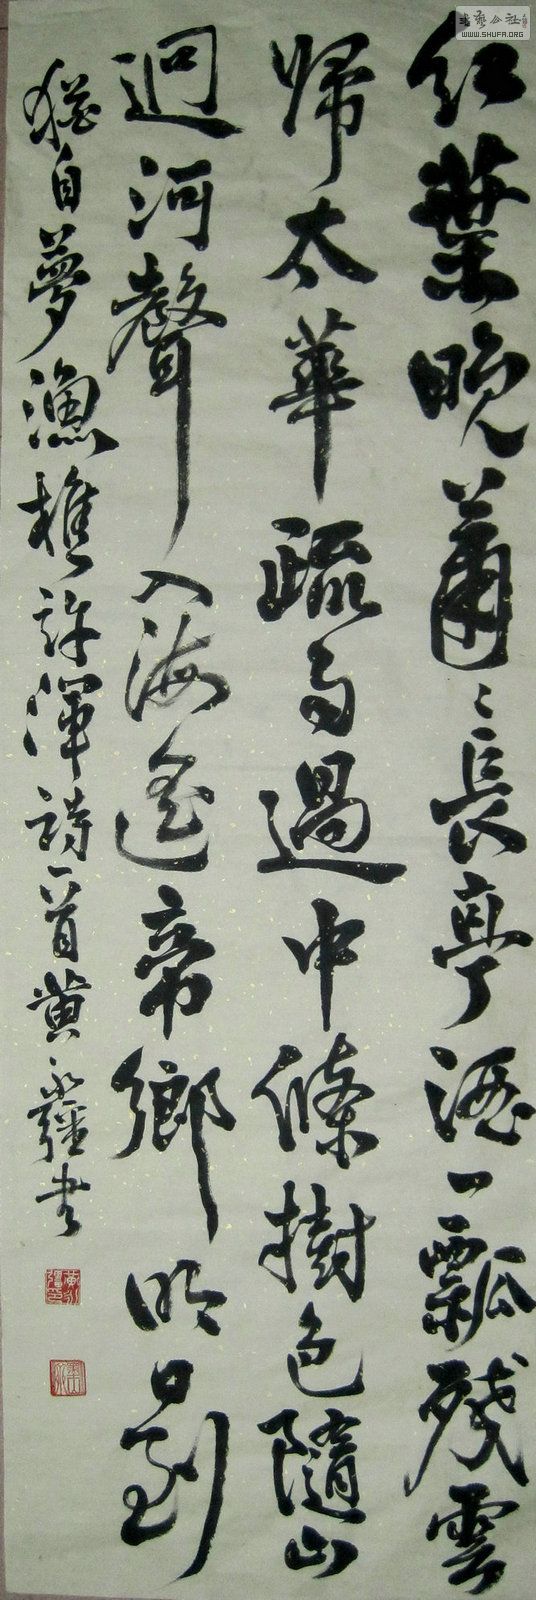 書藝公社
WWW.SHUFA.ORG
紅葉晚蕭〻長亭酒一瓢残雲
歸太華疏雨過中條樹色隨山
迥河聲入海遙帝鄉明日到
猶自夢漁樵許渾詩一首黄永疆书